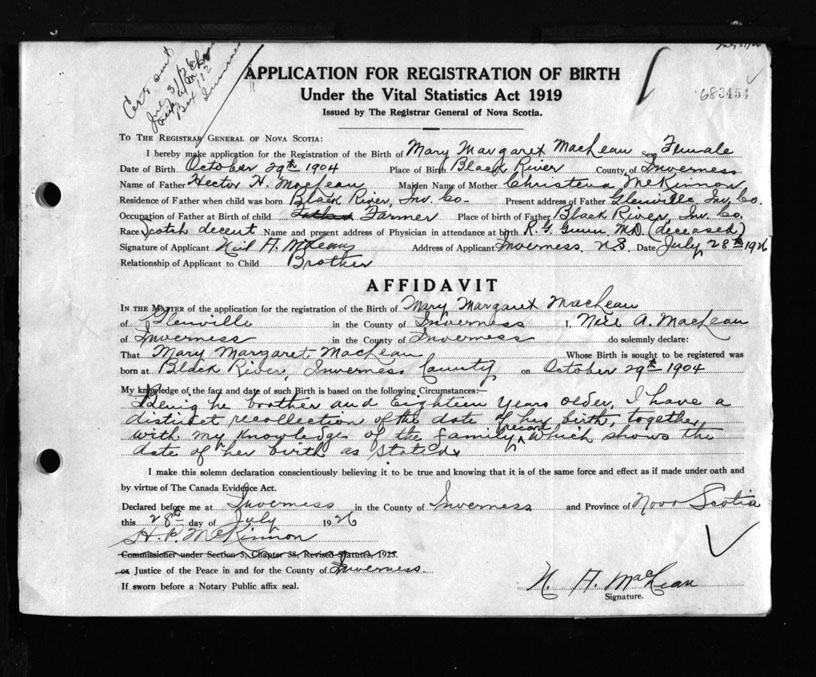 Cert sent
July 31/26
Box 112
683454
APPLICATION FOR REGISTRATION OF BIRTH
Under the Vital Statistics Act 1919
Issued by The Registrar General of Nova Scotia.
TO THE REGISTRAR GENERAL OF NOVA SCOTIA:
I hereby make application for the Registration of the Birth of Mary Margaret MacLean Sex Female
Date of Birth October 29th 1904 Place of Birth Black River County of Inverness
Name of Father Hector H. MacLean Maiden Name of Mother Christena McKinnon
Residence of Father when child was born Black River, Inv. Co. Present address of Father Glenville Inv. Co.
Occupation of Father at Birth of child Farmer Place of birth of Father Black River, Inv. Co.
Race Scotch decent Name and present address of Physician in attendance at birth R. G. Gunn M.D. (deceased)
Signature of Applicant Neil A. McLean Address of Applicant Inverness, N.S. Date July 28th 1926
Relationship of Applicant to Child Brother
AFFIDAVIT
IN THE MATTER of the application for the registration of the Birth of Mary Margaret MacLean
of Glenville in the County of Inverness I, Neil A. MacLean
of Inverness in the County of Inverness do solemnly declare:
That Mary Margaret MacLean Whose Birth is sought to be registered was
born at Black River, Inverness County on October 29th 1904
My knowledge of the fact and date of such Birth is based on the following Circumstances:—
Being he brother and Eighteen years older, I have a
distinct recollection of the date of her birth, together
with my knowledge of the family record which shows the
date of her birth as stated.
I make this solemn declaration conscientiously believing it to be true and knowing that it is of the same force and effect as if made under oath and
by virtue of The Canada Evidence Act.
Declared before me at Inverness in the County of Inverness and Province of Nova Scotia
this 28th day of July 1926
H. P. McKinnon
Commissioner under Section 3, Chapter 38, Revised Statutes, 1923.
or Justice of the Peace in and for the County of Inverness.
If sworn before a Notary Public affix seal.
N. A. MacLean
Signature.